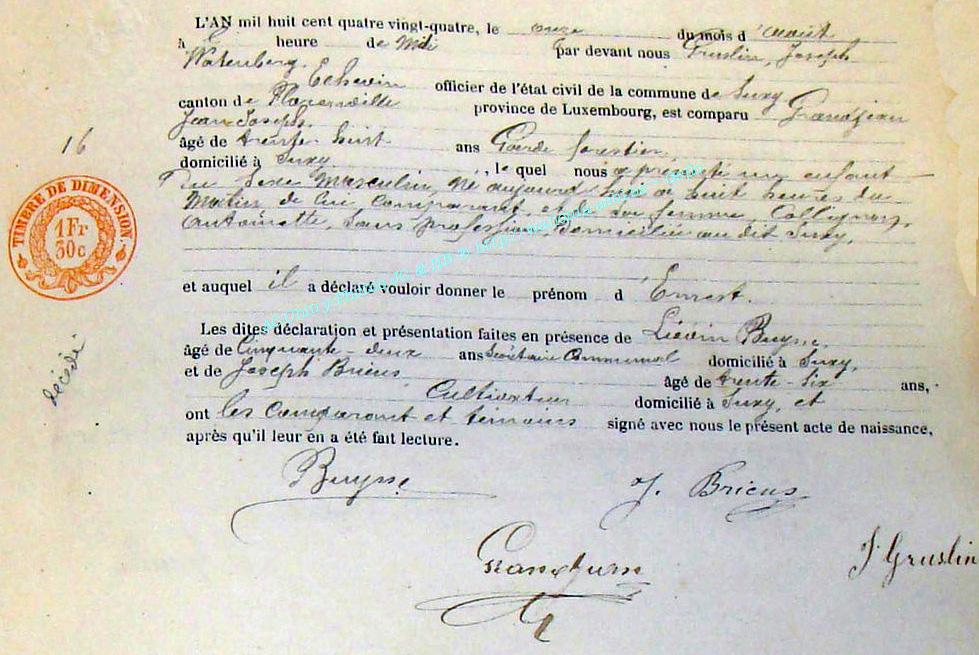 L'AN mil huit cent quatre vingt-quatre, le onze du mois d'août
à heure de Midi par devant nous Gruslin, Joseph
Watenberg. Echevin officier de l'état civil de la commune de Suxy
canton de Florenville province de Luxembourg, est comparu Grandjean
Jean Joseph.
âgé de trente-huit ans Garde forestier,
domicilié à Suxy. , le quel nous a présenté un enfant
du sexe Masculin, né aujourd'hui à huit heures du
Matin de lui Comparant, et de sa femme, Collignon,
Antoinette, Sans profession, domiciliée au dit Suxy,
et auquel il a déclaré vouloir donner le prénom d'Ernest.
Les dites déclaration et présentation faites en présence de Liévin Buysse,
âgé de Cinquante-deux ans Secrétaire Communal domicilié à Suxy,
et de Joseph Brieus, âgé de trente-six ans,
Cultivateur domicilié à Suxy, et
ont les Comparant et témoins signé avec nous le présent acte de naissance,
après qu'il leur en a été fait lecture.
Buysse
J. Brieus
Grandjean
J Gruslin
16
TIMBRE DE DIMENSION
1Fr
30c
décédé